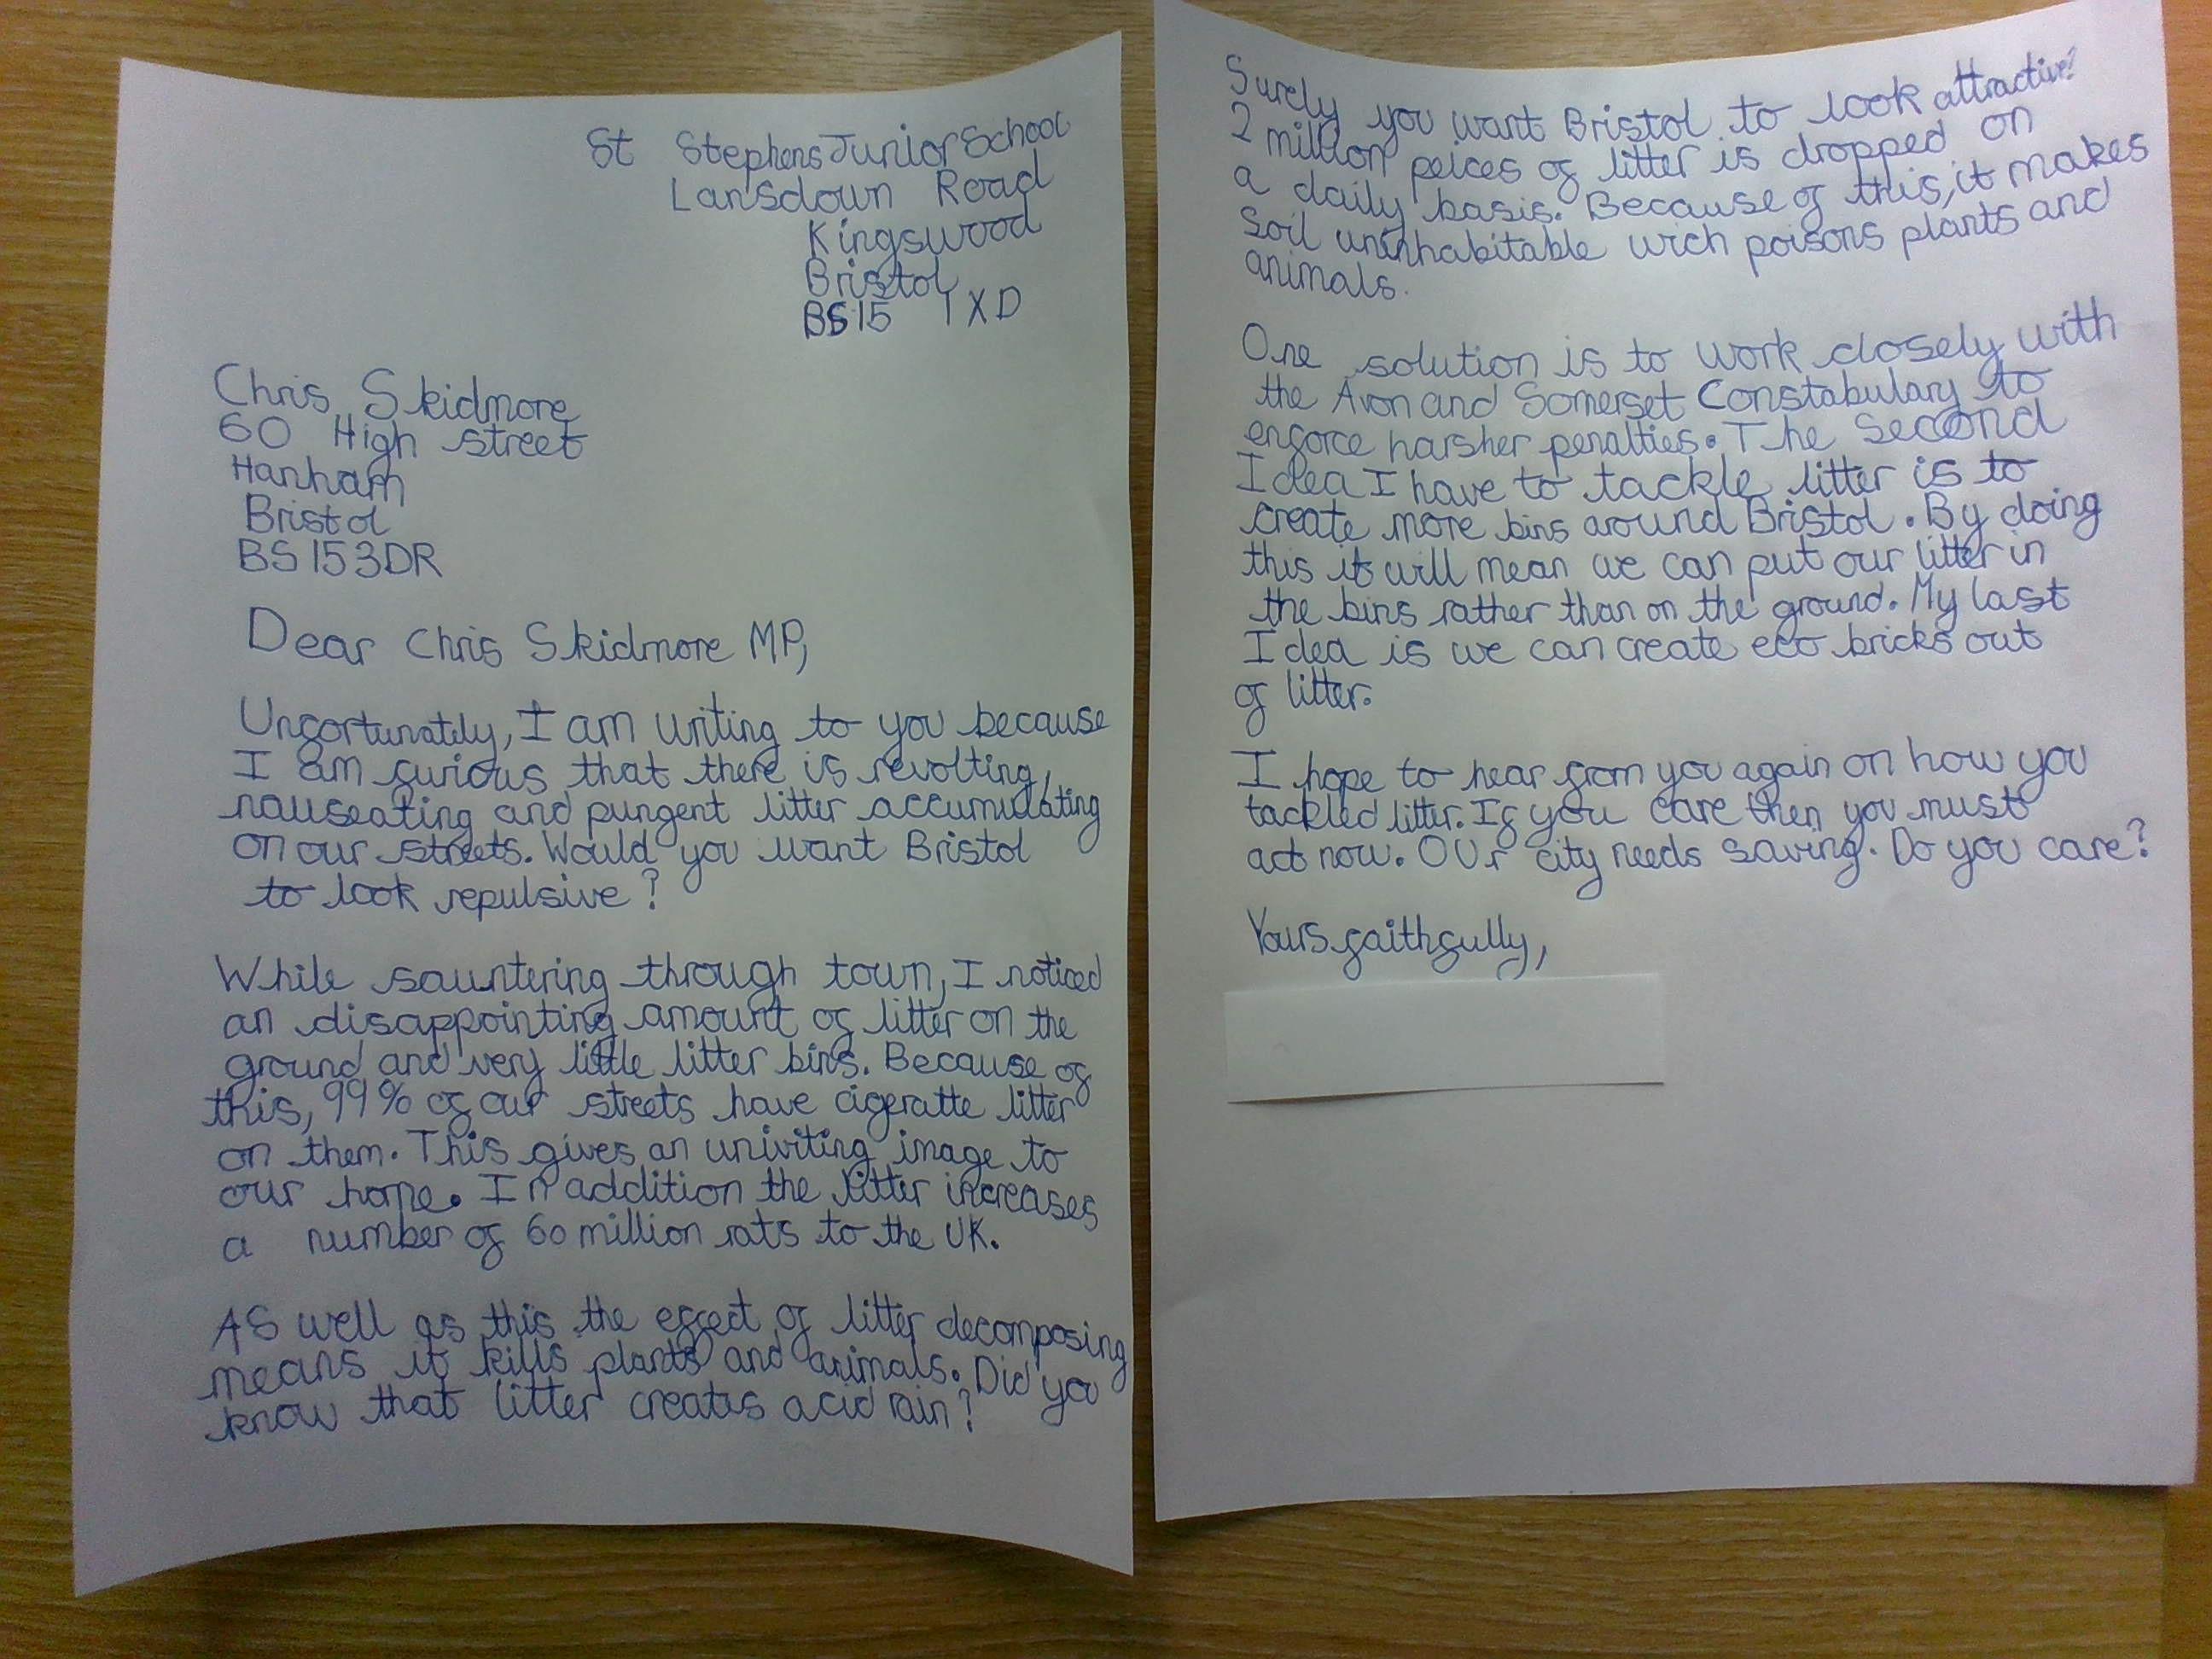 St Stephens Junior School
Lansdown Road
Kingswood
Bristol
BS15 1XD
Chris Skidmore
60 High street
Hanham
Bristol
BS153DR
Dear Chris Skidmore MP,
Unfortunately, I am writing to you because
I am furious that there is revolting,
nauseating and pungent litter accumulating
on our streets. Would you want Bristol
to look repulsive?
While sauntering through town, I noticed
an disappointing amount of litter on the
ground and very little litter bins. Because of
this, 99% of our streets have cigeratte litter
on them. This gives an univiting image to
our home. In addition the litter increases
a number of 60 million rats to the UK.
As well as this the effect of litter decomposing
means it kills plants and animals. Did you
know that litter creates acid rain?
Surely you want Bristol to look attractive?
2 million peices of litter is dropped on
a daily basis. Because of this, it makes
soil uninhabitable wich poisons plants and
animals.
One solution is to work closely with
the Avon and Somerset Constabulary to
enforce harsher penalties. The second
Idea I have to tackle litter is to
create more bins around Bristol. By doing
this it will mean we can put our litter in
the bins rather than on the ground. My last
Idea is we can create eco bricks out
of litter.
I hope to hear from you again on how you
tackled litter. If you care then you must
act now. Our city needs saving. Do you care?
Yours faithfully,